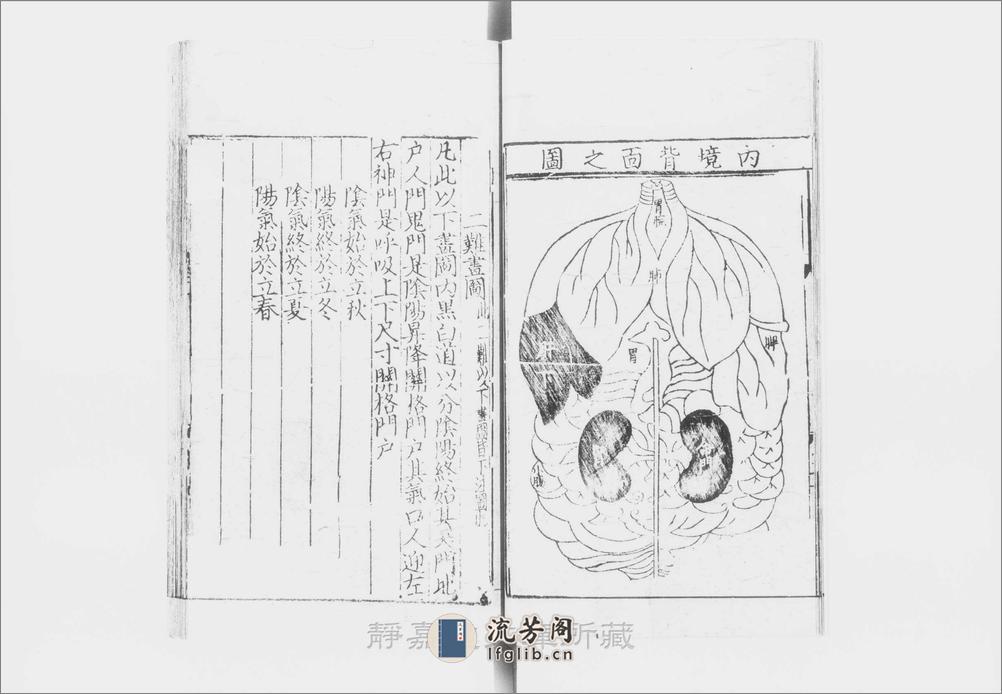 內境背面之圖
胃脘
肺
脾
胃
肝
腎
二難畫圖
凡此以下畫圖內黑白道以分陰陽終始其天門地
户人門鬼門是陰陽昇降關格門户其氣口人迎左
右神門是呼吸上下尺寸關格門户
陰氣始於立秋
陽氣終於立冬
陰氣終於立夏
陽氣始於立春
靜嘉 所藏
流芳阁
lfglib.cn